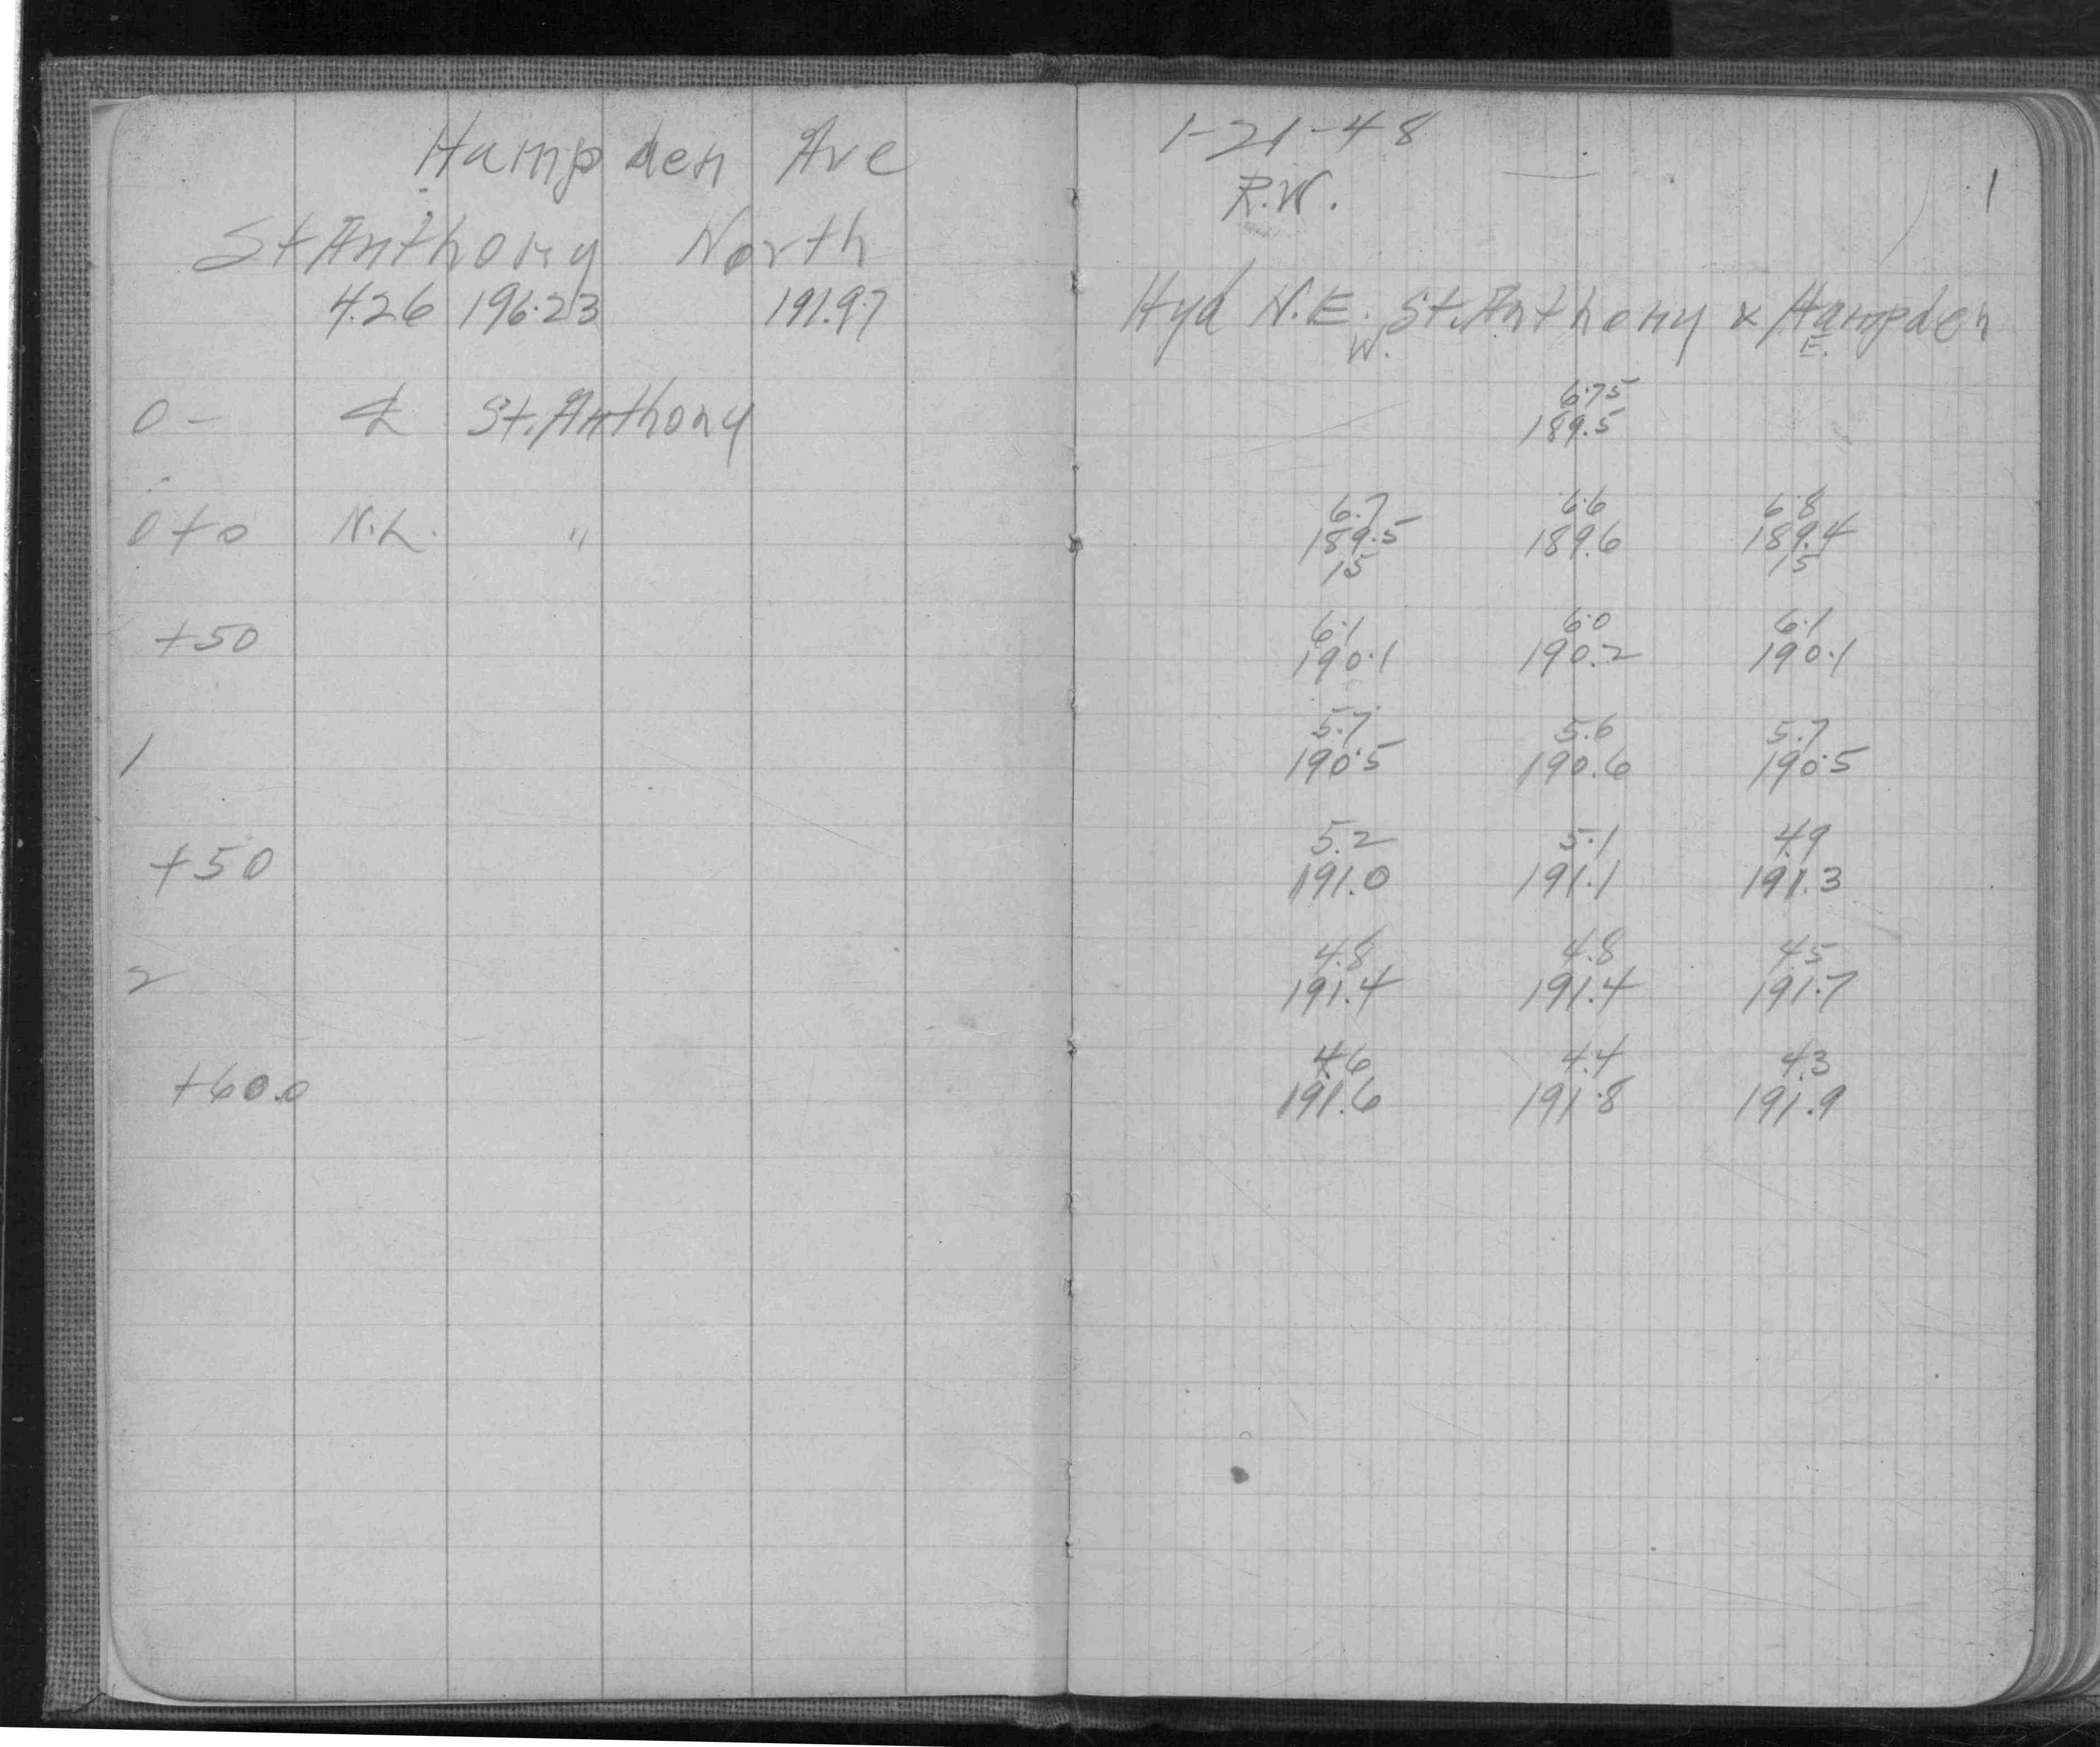 Hampden Ave
St Anthony North
4.26 196.23 191.97
0 - ℄ St. Anthony
0+0 N.L. "
+50
1
+50
2
+60.0
1-21-48
R.W.
1
Hyd N.E. St. Anthony x Hampden
W. E.
6.75
189.5
6.7 6.6 6.8
189.5 189.6 189.4
15 15
6.1 6.0 6.1
190.1 190.2 190.1
5.7 5.6 5.7
190.5 190.6 190.5
5.2 5.1 4.9
191.0 191.1 191.3
4.8 4.8 4.5
191.4 191.4 191.7
4.6 4.4 4.3
191.6 191.8 191.9